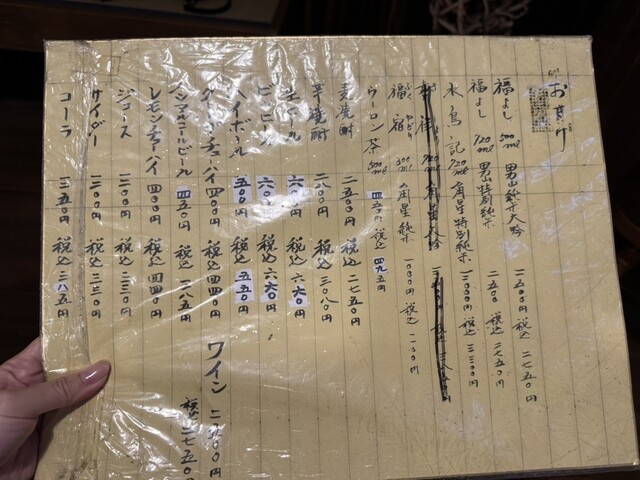 福よし 500ml 男山純米大吟 二五〇〇円 税込 二七五〇円
福よし 720ml 男山特別純米 二五〇〇円 税込 二七五〇円
水鳥記 720ml 角星特別純米 三〇〇〇円 税込 三三〇〇円
福宿 300ml 角星純米 一〇〇〇円 税込 一一〇〇円
ウーロン茶 500ml 四五〇円 税込 四九五円
麦焼酎 二五〇〇円 税込 二七五〇円
芋焼酎 二八〇〇円 税込 三〇八〇円
生ビール 六〇〇円 税込 六六〇円
ビンビール 六〇〇円 税込 六六〇円
ハイボール 五〇〇円 税込 五五〇円
チューハイ 四〇〇円 税込 四四〇円
ワイン 二五〇〇円
税込 二七五〇円
ノンアルコールビール 四五〇円 税込
レモンチューハイ 四〇〇円 税込 四四〇円
ジュース 二〇〇円 税込 二二〇円
サイダー 三〇〇円 税込 三三〇円
コーラ 三五〇円 税込 三八五円